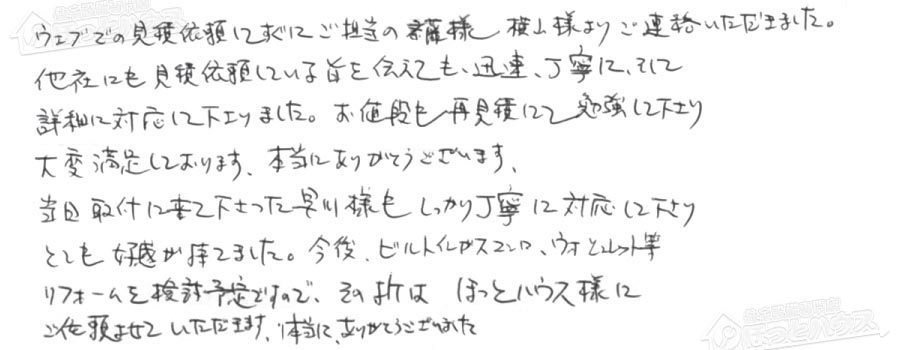 ウェブでの見積依頼にすぐにご担当の 様 横山様よりご連絡いただきました。
他社にも見積依頼している旨を伝えても、迅速、丁寧に、そして
詳細に対応して下さりました。お値段も再見積にて勉強して下さり
大変満足しております。本当にありがとうございます。
当日取付に来て下さった早川様もしっかり丁寧に対応して下さり
とても好感が持てました。今後、ビルトインガスコンロ、ウォシュレット等
リフォームを検討予定ですので、その折は ほっとハウス様に
ご依頼させていただきます。本当に、ありがとうございました
ほっとハウス